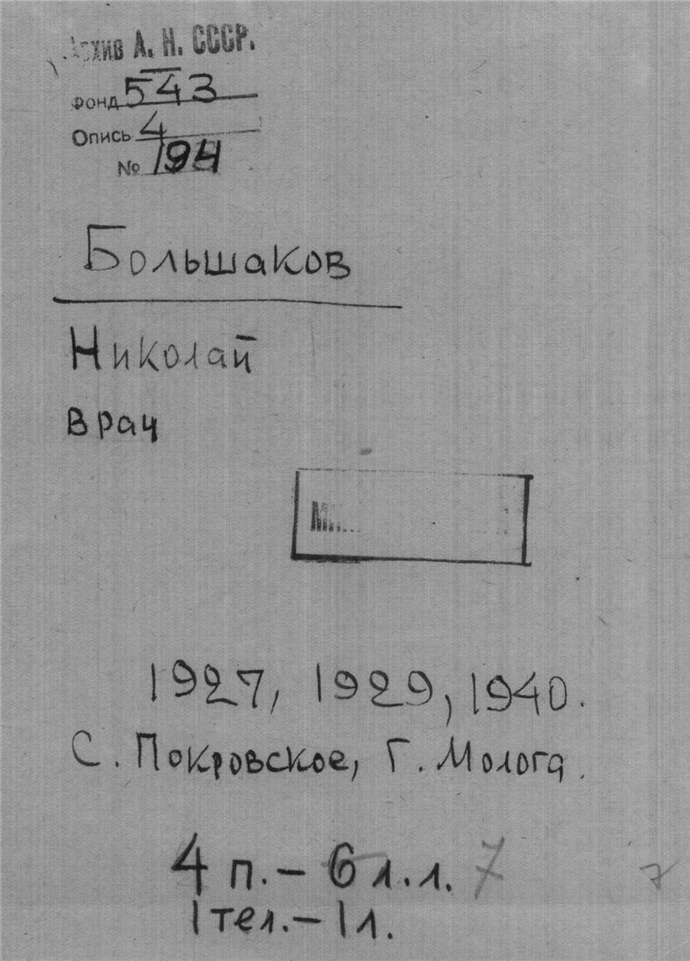 Архив А. Н. СССР.
Фонд 543
Опись 4
№ 194
Большаков
Николай
врач
1927, 1929, 1940.
С. Покровское, г. Молога.
4 п. – 6 л.л. 7
1 тел. – 1 л.
7